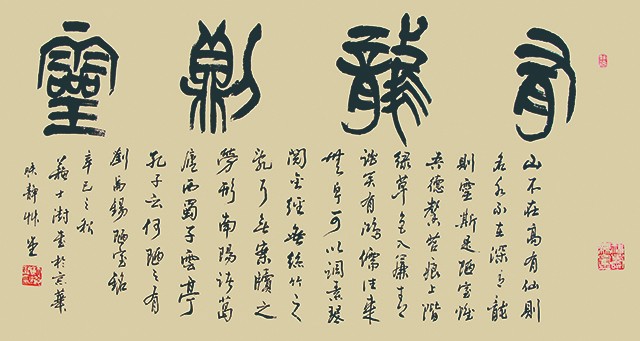 有龍則靈
山不在高有仙則
名水不在深有龍
則靈斯是陋室惟
吾德馨苔痕上階
綠草色入簾青
談笑有鴻儒往來
無白丁可以調素琴
閱金經無絲竹之
亂耳無案牘之
勞形南陽諸葛
廬西蜀子雲亭
孔子云何陋之有
劉禹錫陋室銘
辛巳之秋
蘇士澍書於京華
映靜艸堂